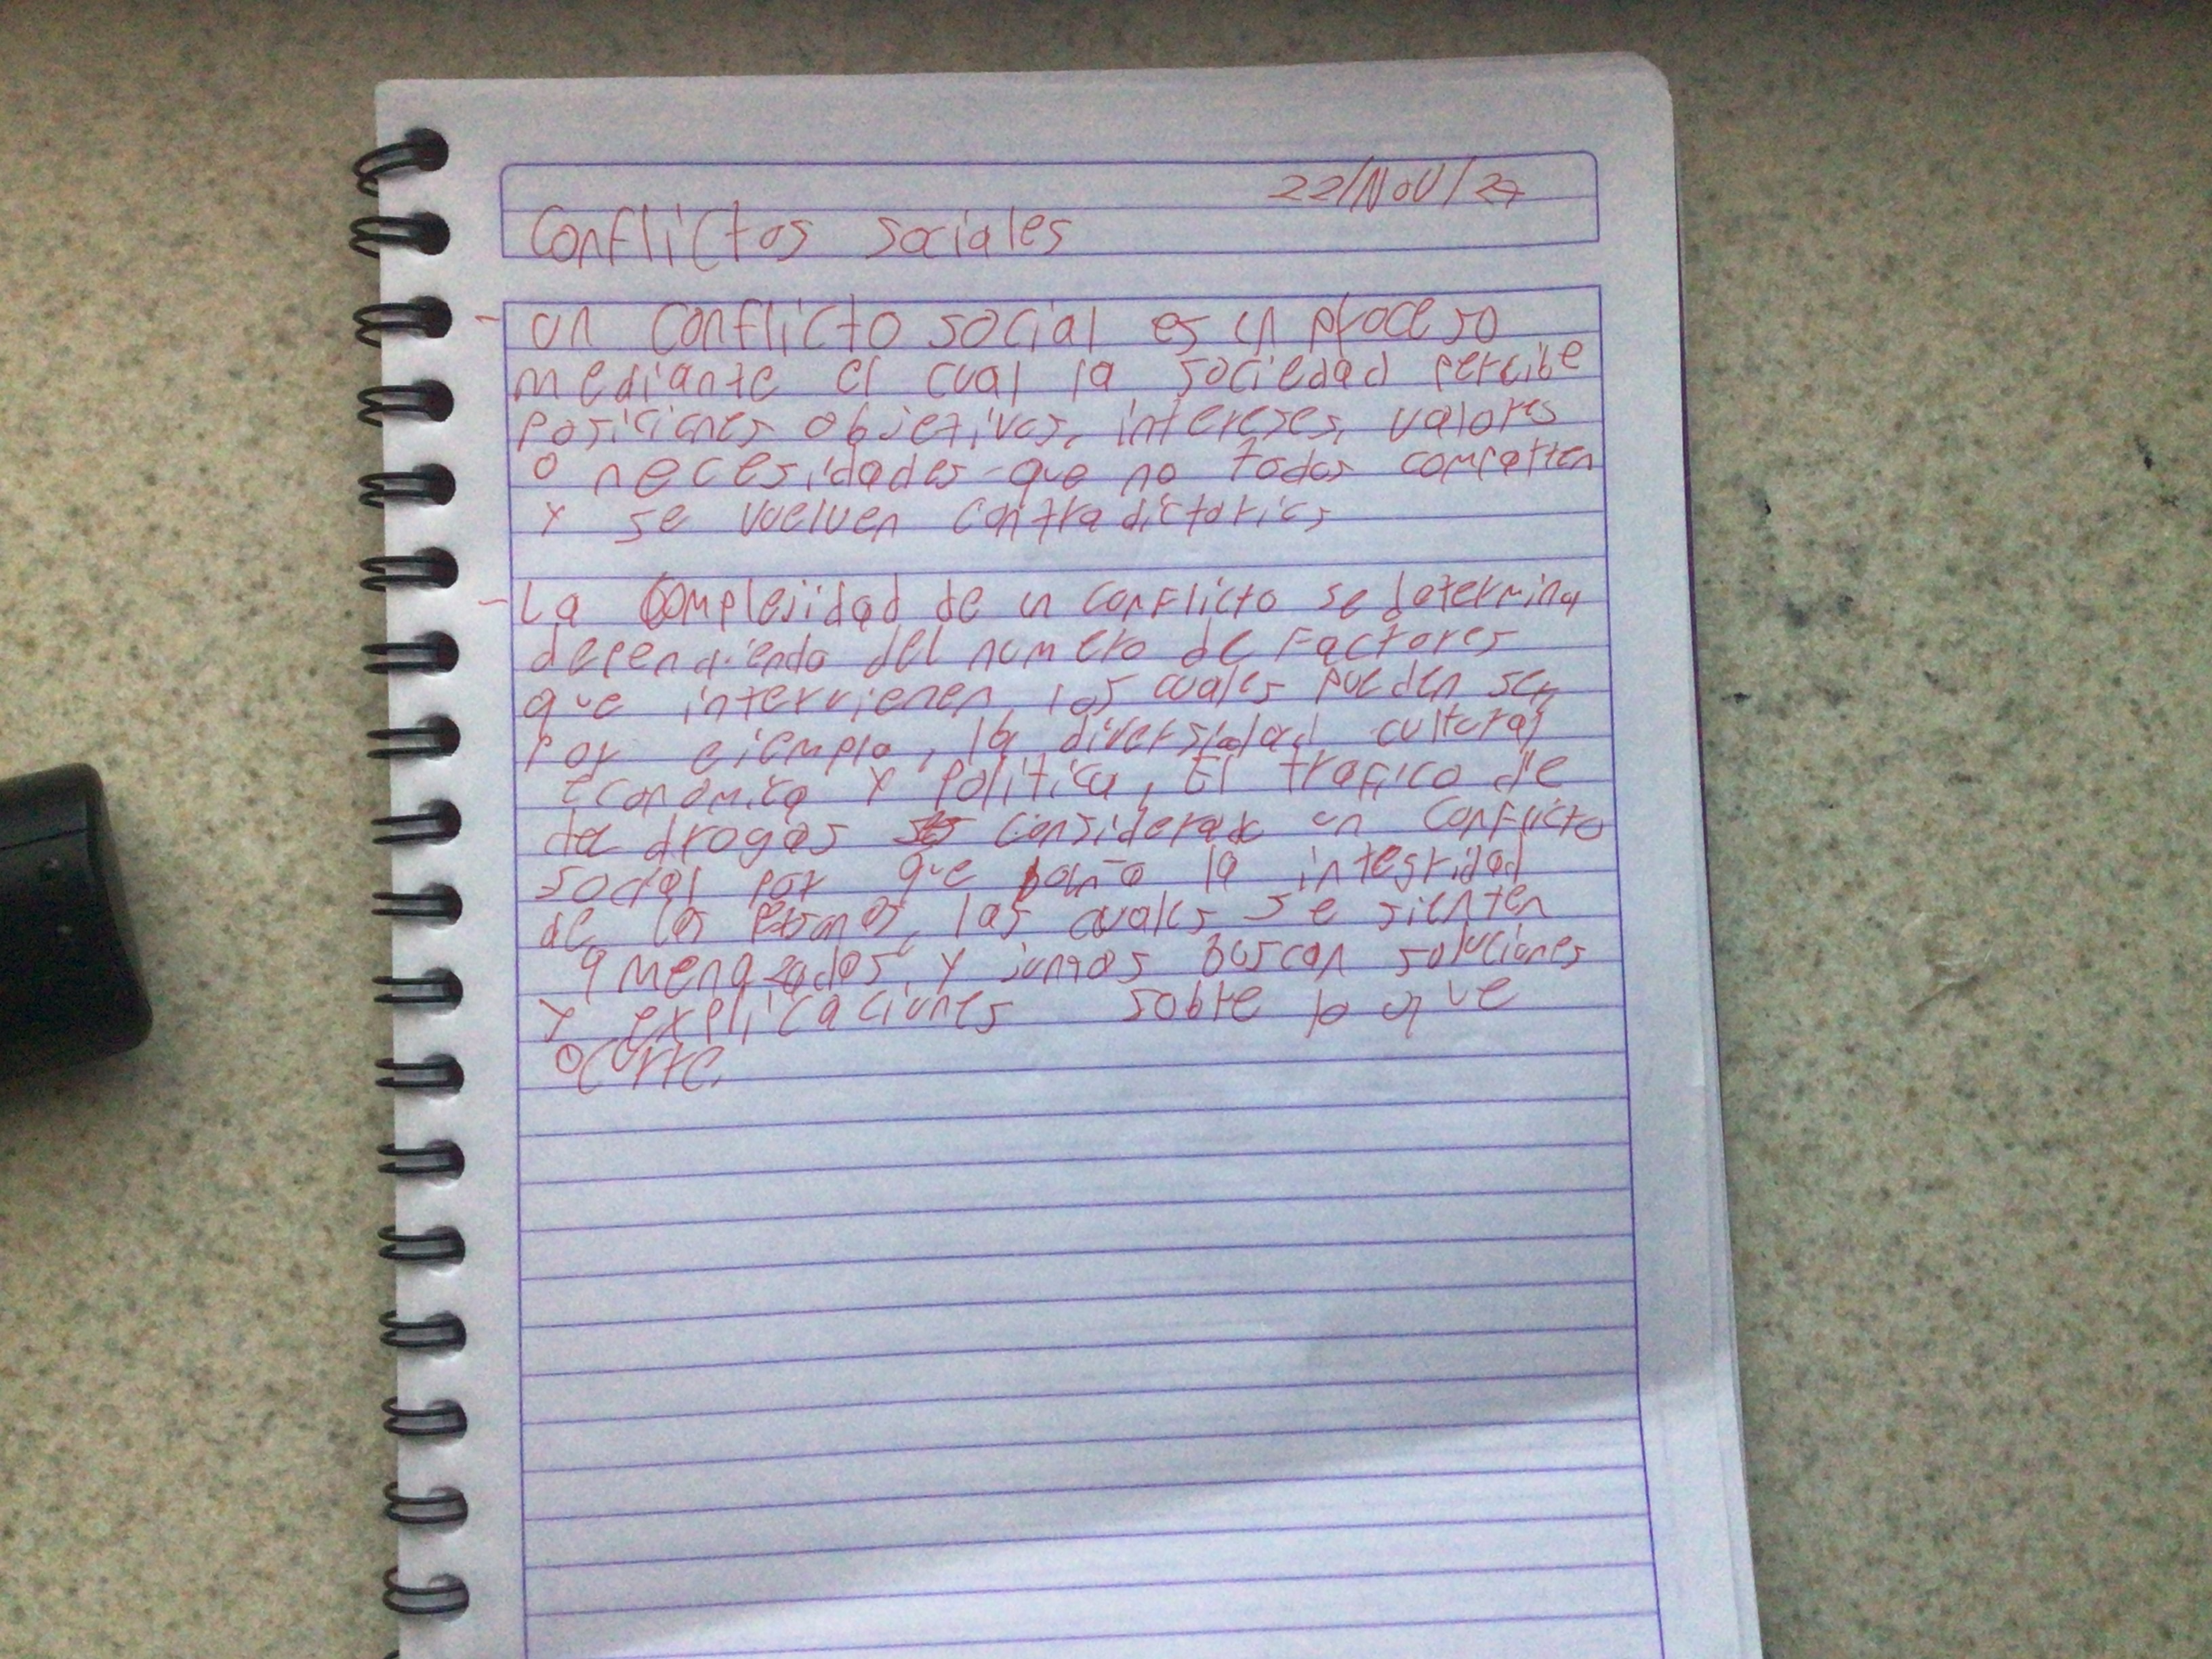 22/Nov/27
Conflictos sociales
- un conflicto social es un proceso
mediante el cual la sociedad percibe
posiciones objetivos, intereses, valores
o necesidades que no todos comparten
y se vuelven contradictorios
- La complejidad de un conflicto se determina
dependiendo del numero de Factores
que intervienen, los cuales pueden ser,
por ejemplo, la diversidad cultural
económica y política, El trafico de
de drogas es considerado un conflicto
social por que daña la integridad
de las personas, las cuales se sienten
amenazados, y juntos buscan soluciones
y explicaciones sobre lo que
ocurre.